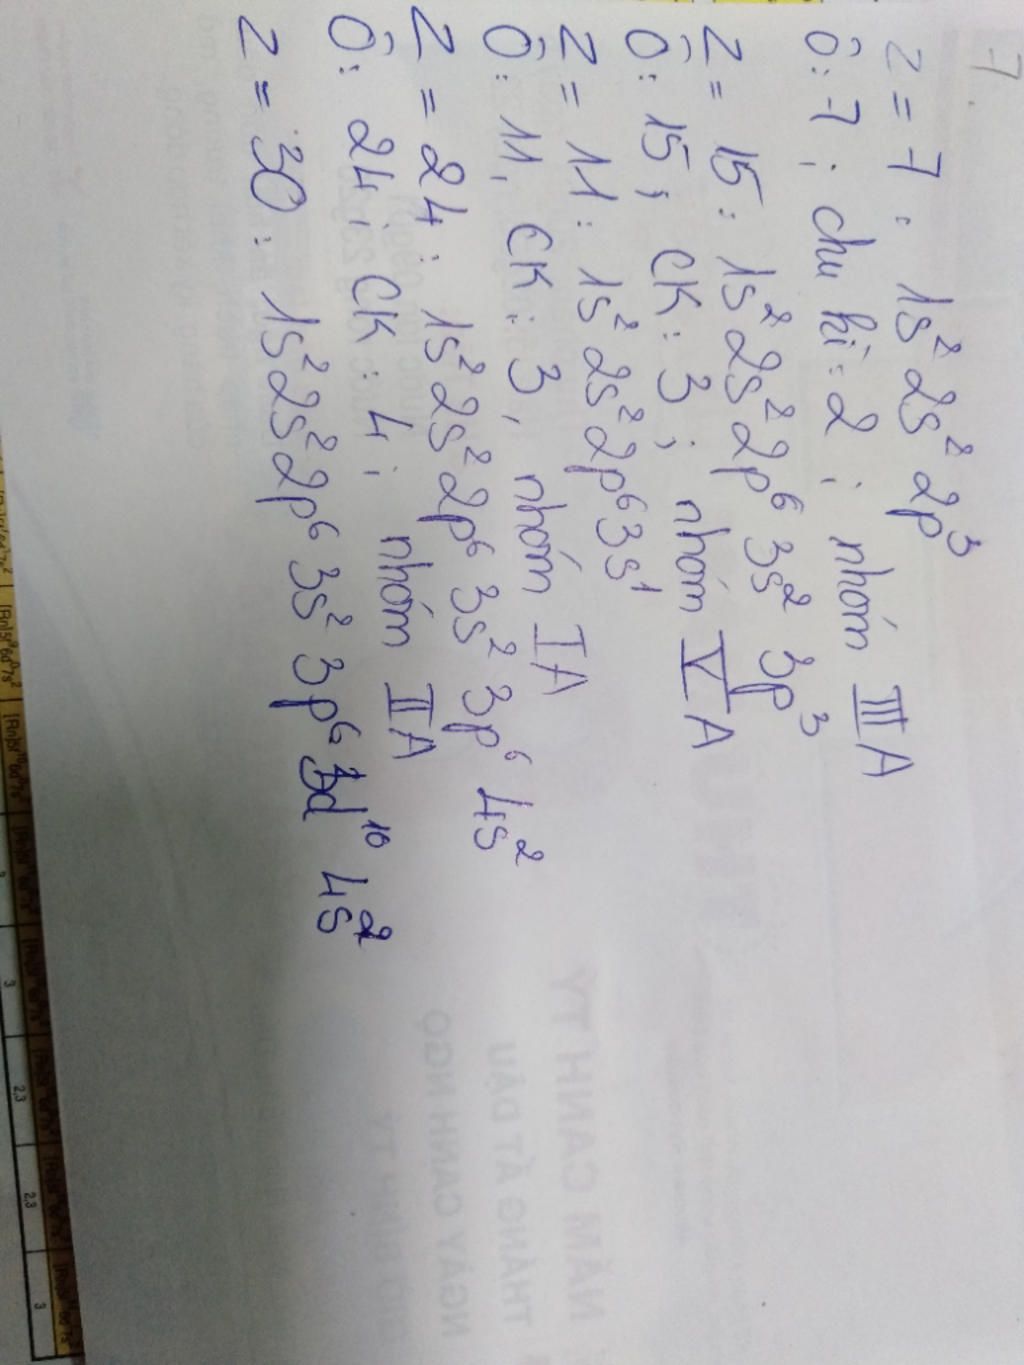 7.
Z = 7 : 1s² 2s² 2p³
Ô: 7 ; chu kì: 2 ; nhóm IIIA
Z = 15 : 1s² 2s² 2p⁶ 3s² 3p³
Ô: 15 ; CK: 3 ; nhóm VA
Z = 11 : 1s² 2s² 2p⁶ 3s¹
Ô: 11, CK: 3, nhóm IA
Z = 24 : 1s² 2s² 2p⁶ 3s² 3p⁶ 4s²
Ô: 24 ; CK : 4 ; nhóm IIA
Z = 30 : 1s² 2s² 2p⁶ 3s² 3p⁶ 3d¹⁰ 4s²